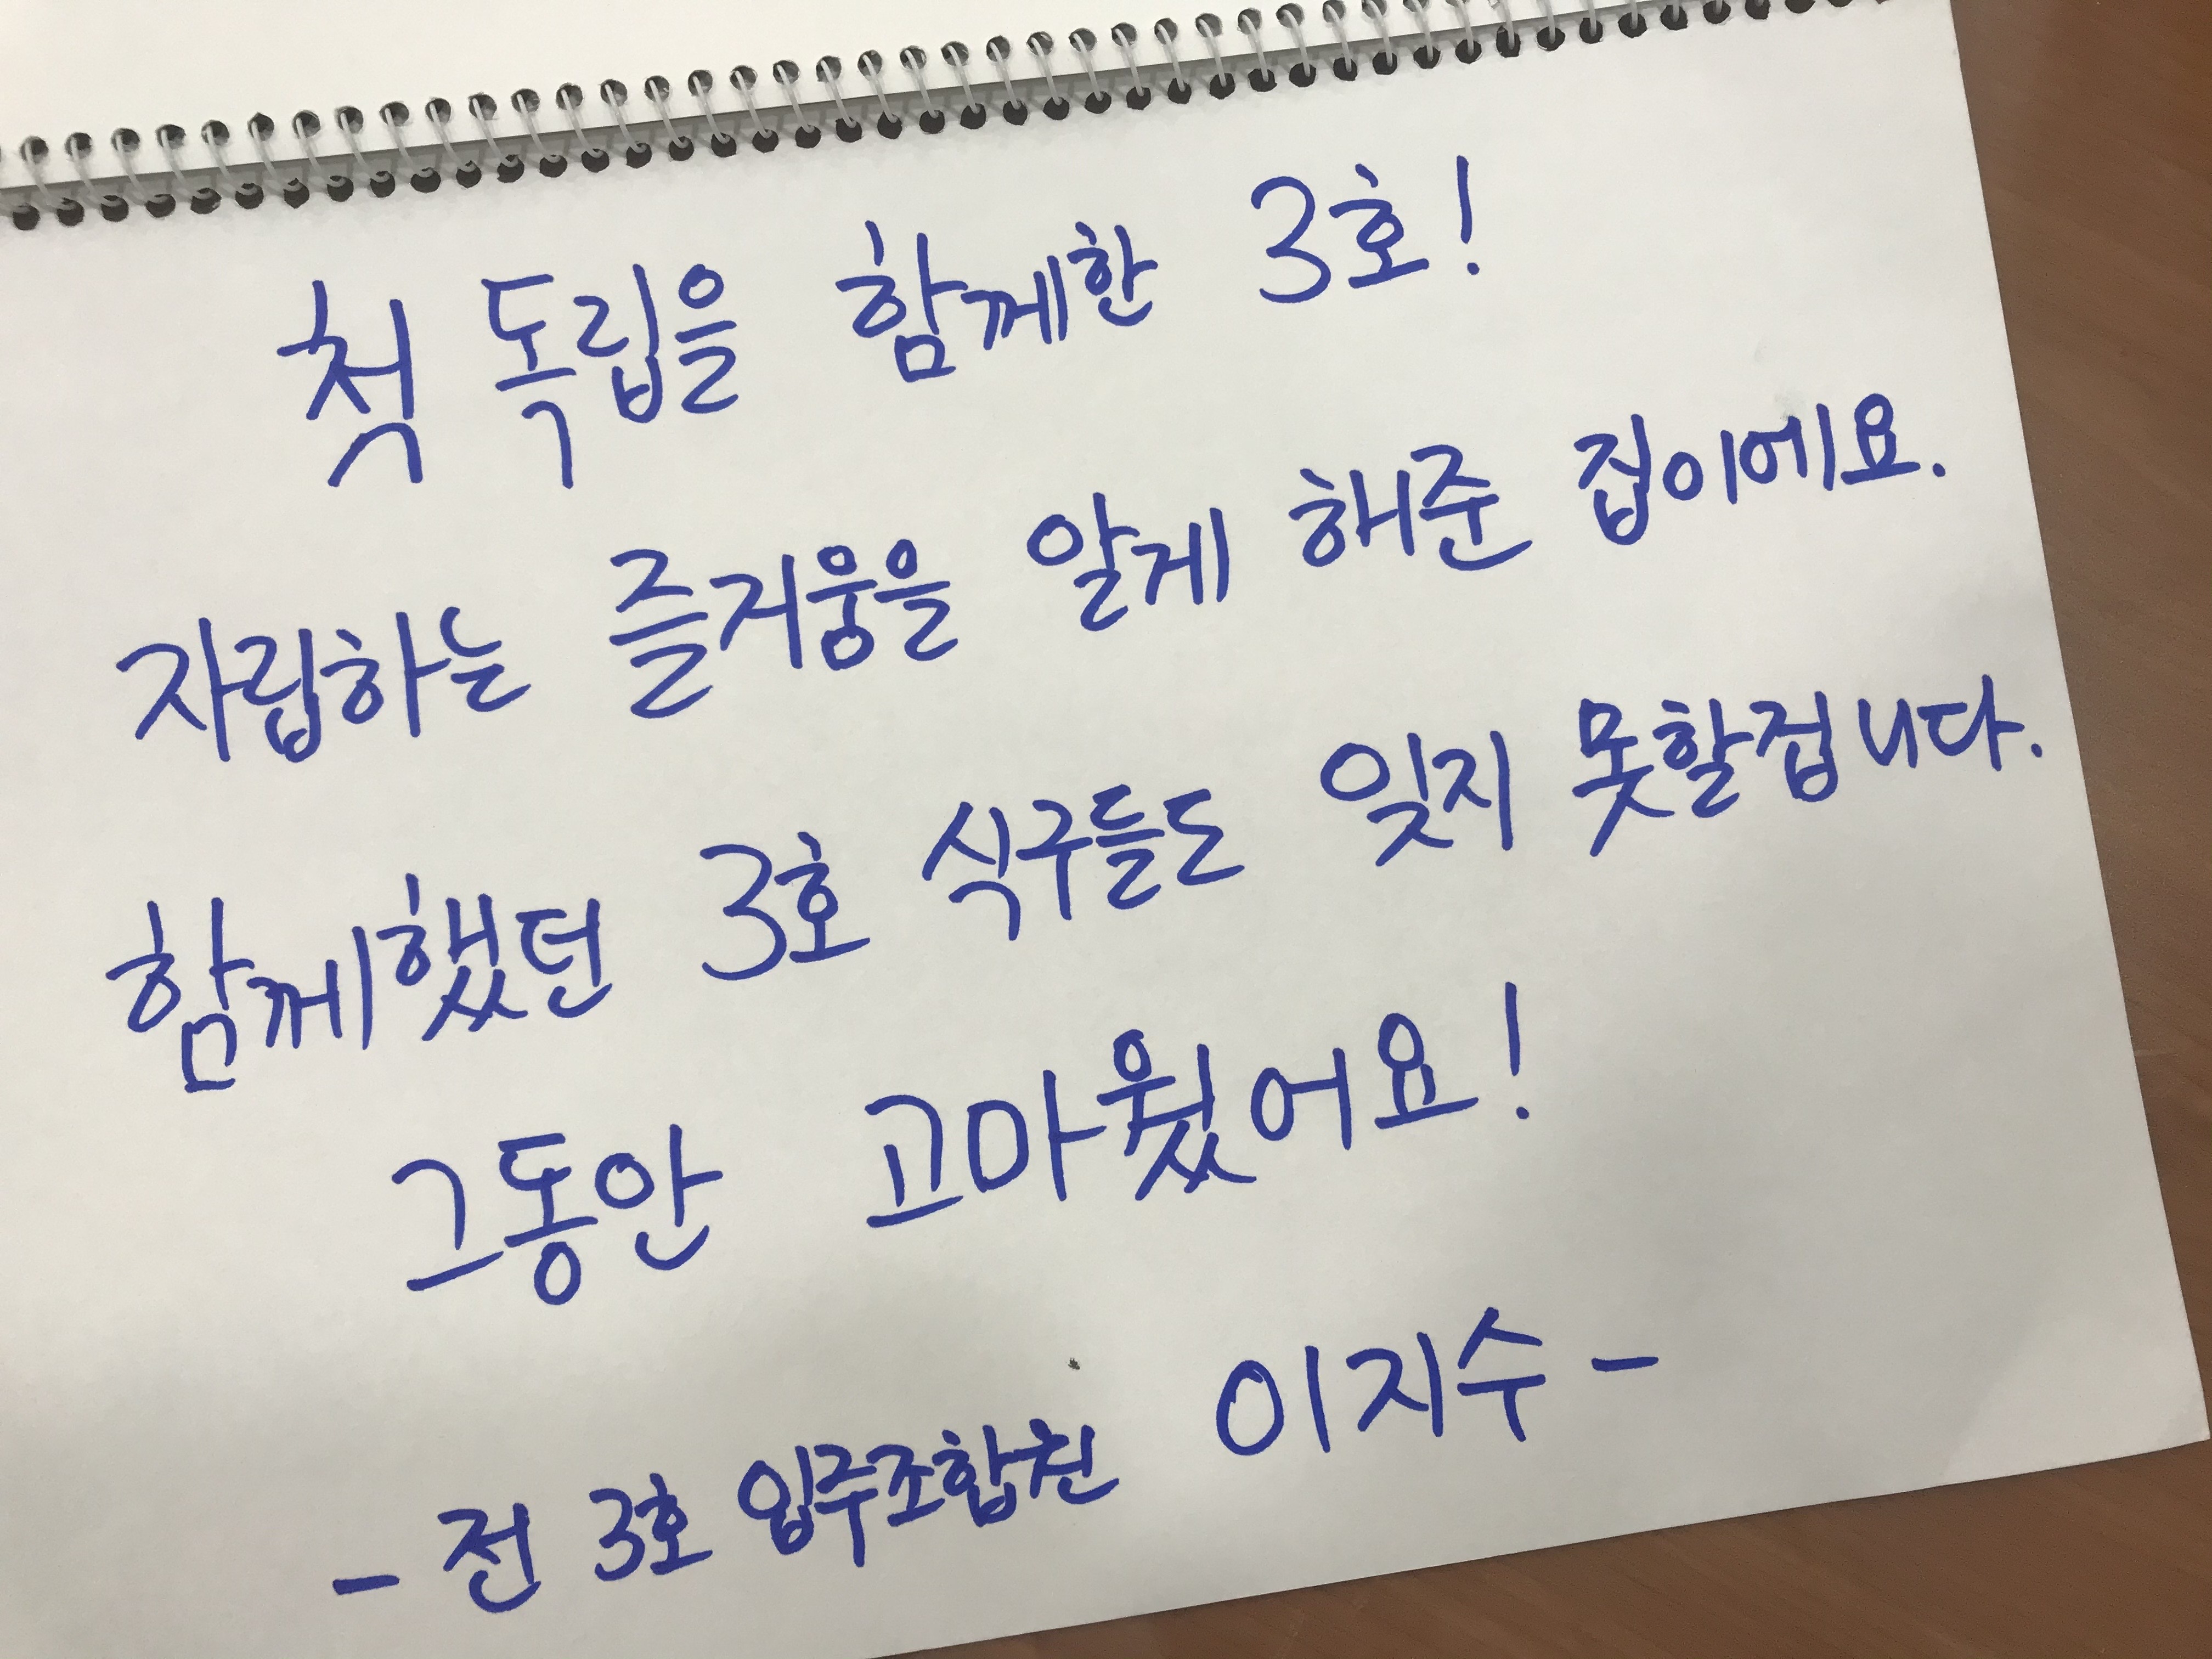 첫 독립을 함께한 3호!
자립하는 즐거움을 알게 해준 집이에요.
함께했던 3호 식구들도 잊지 못할겁니다.
그동안 고마웠어요!
- 전 3호 입주조합원 이지수 -